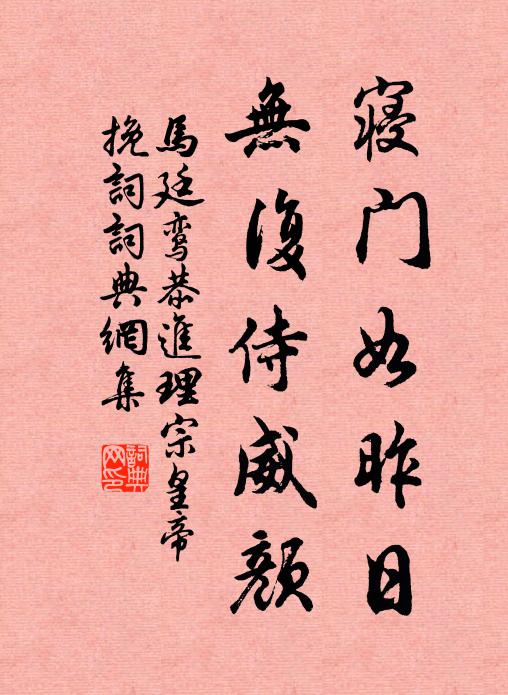 寢門如昨日
無復侍威顏
馬廷鸞恭進理宗皇帝
挽詞詞典網集
詞典
网印